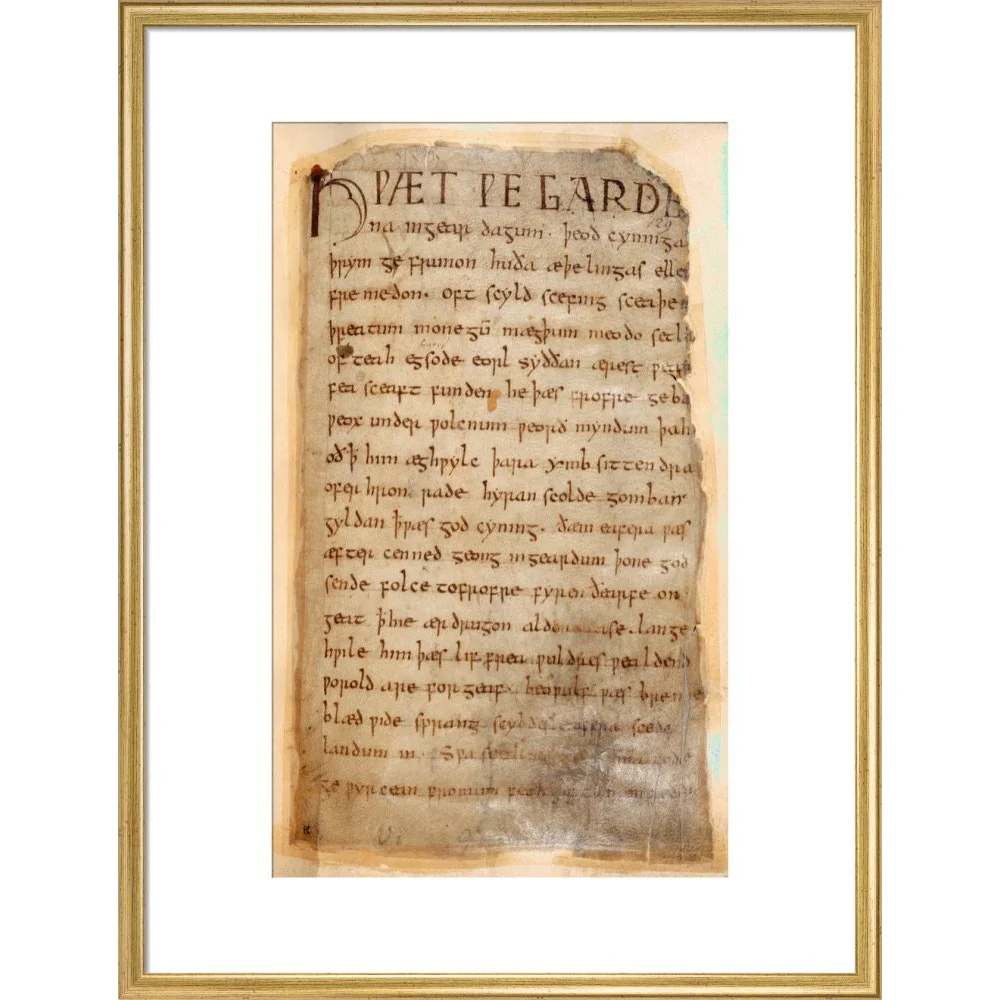 HǷÆT ǷE GARDE
na ingear dagum. þeod cyninga
þrym ge frunon huða æþelingas elle
fremedon. oft scyld scefing sceaþe
þreatum monegū mægþum meodo setl
of teah egsode eorl syððan ærest
fea sceaft funden he þæs frofre geba
ƿeox under ƿolcnum ƿeorð myndum þah
oðꝥ him æghƿylc þara ymb sittendra
ofer hron rade hyran scolde gomban
gyldan ꝥƿæs god cyning. ðæm eafera ƿæs
æfter cenned geong ingeardum þone god
sende folce tofrofre fyren ðearfe on
geat ꝥhie ær drugon aldor ase. lange
hƿile him þæs lif frea ƿuldres ƿealdend
ƿorold are forgeaf. beoƿulf ƿæs breme
blæd ƿide sprang scyldes eafera scede
landum in. Sƿa
ge ƿyrcean fromum